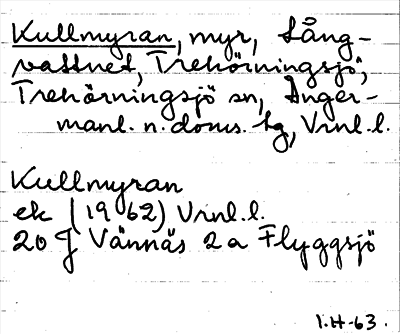 Kullmyran, myr, Lång-
vattnet, Trehörningsjö,
Trehörningsjö sn, Ånger-
manl. n. doms. hg, Vrnl. l.
Kullmyran
ek (1962) Vrnl. l.
20 J Vännäs 2a Flyggsjö
I.H-63.